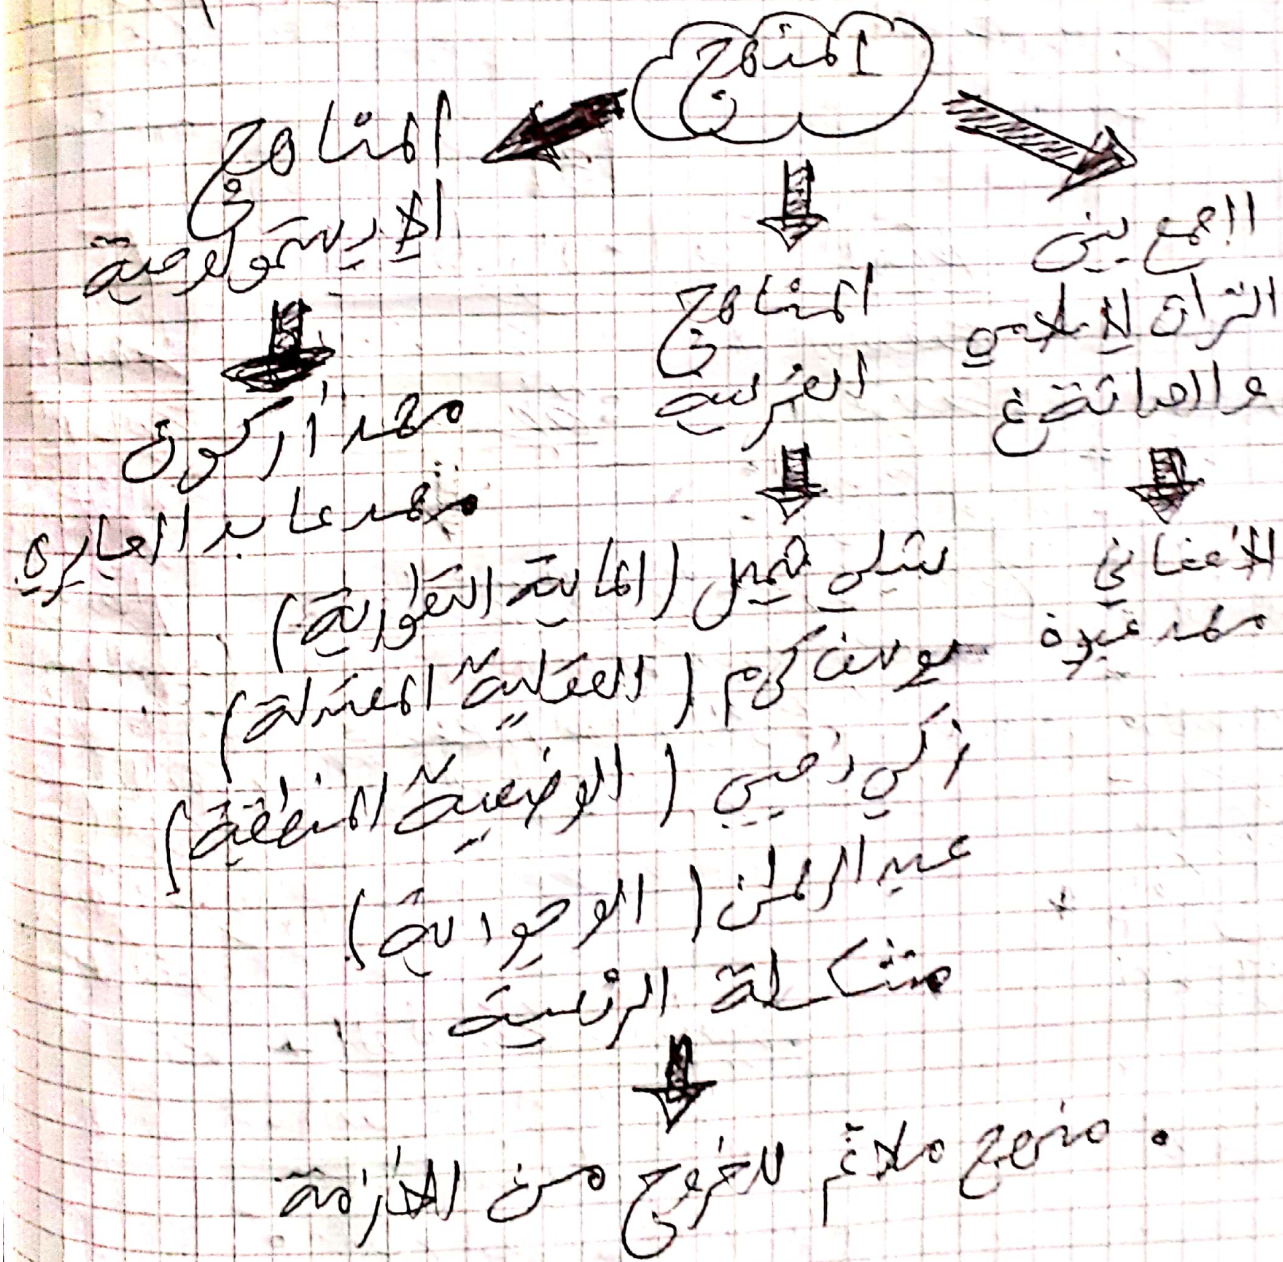 المنهج
الجمع بين
التراث الإسلامي
والحداثة
الأفغاني
محمد عبده
المناهج
الغربية
شبلي شميل (المادية التطورية)
يوسف كرم (العقلية المعتدلة)
زكي نجيب (الوضعية المنطقية)
عبد الرحمن (الوجودية)
مشكلة الرئسية
• منهج ملائم للخروج من الأزمة
المناهج
الإبستمولوجية
محمد أركون
محمد عابد الجابري